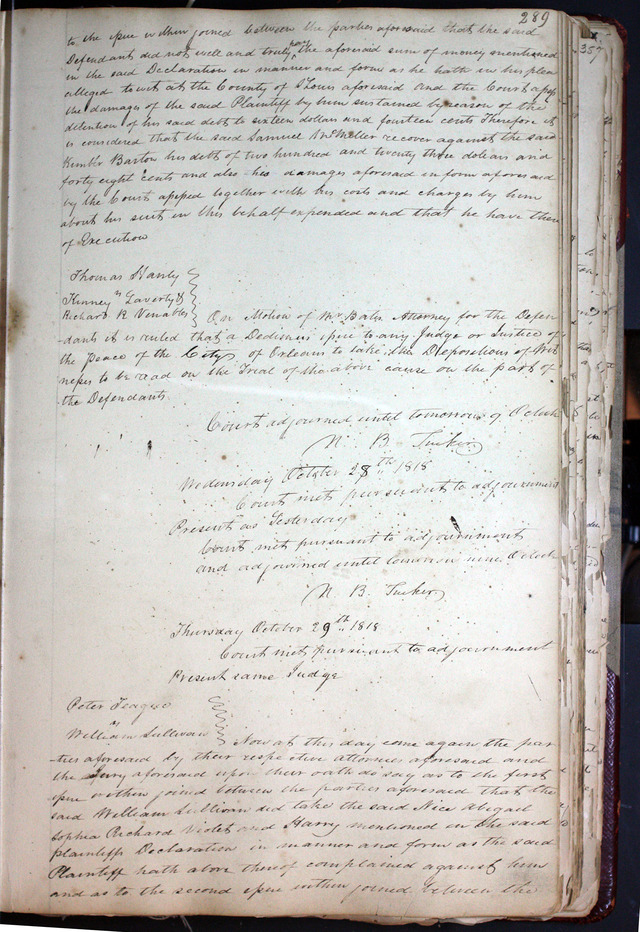 289
to the issue within joined between the parties aforesaid that the said
Defendants did not well and truly pay the aforesaid sum of money mentioned
in the said Declaration in manner and form as he hath in his plea
alleged to wit at the County of St Louis aforesaid and the Court assess
the damages of the said Plaintiff by him sustained by reason of the
detention of his said debt to sixteen dollars and fourteen cents Therefore it
is considered that the said Samuel recover against the said
Barton his debt of two hundred and twenty three dollars and
forty eight cents and also his damages aforesaid in form aforesaid
by the Court assessed together with his costs and charges by him
about his suit in this behalf expended and that he have there
of Execution
Thomas Hanly
vs
Richard R Venables } On Motion of Mr Bates Attorney for the Defen
dants it is ruled that a Dedimus issue to any Judge or Justice of
the peace of the City of Orleans to take the Depositions of Wit
nesses to be read on the Trial of the above cause on the part of
the Defendants
Court adjourned until tomorrow 9 Oclock
N. B. Tucker
Wednesday October 28th 1818
Court met pursuant to adjournment
Present as Yesterday
Court met pursuant to adjournment
and adjourned until tomorrow nine Oclock
N. B. Tucker
Thursday October 29th 1818
Court met pursuant to adjournment
Present same Judge
Peter Teague
vs
William Sullivan } Now at this day come again the par
ties aforesaid by their respective attornies aforesaid and
the Jury aforesaid upon their oath do say as to the first
issue within joined between the parties aforesaid that the
said William Sullivan did take the said Nice Abigail
Sophia Richard Violet and Harry mentioned in the said
plaintiffs Declaration in manner and form as the said
Plaintiff hath above thereof complained against him
and as to the second issue within joined between the
357